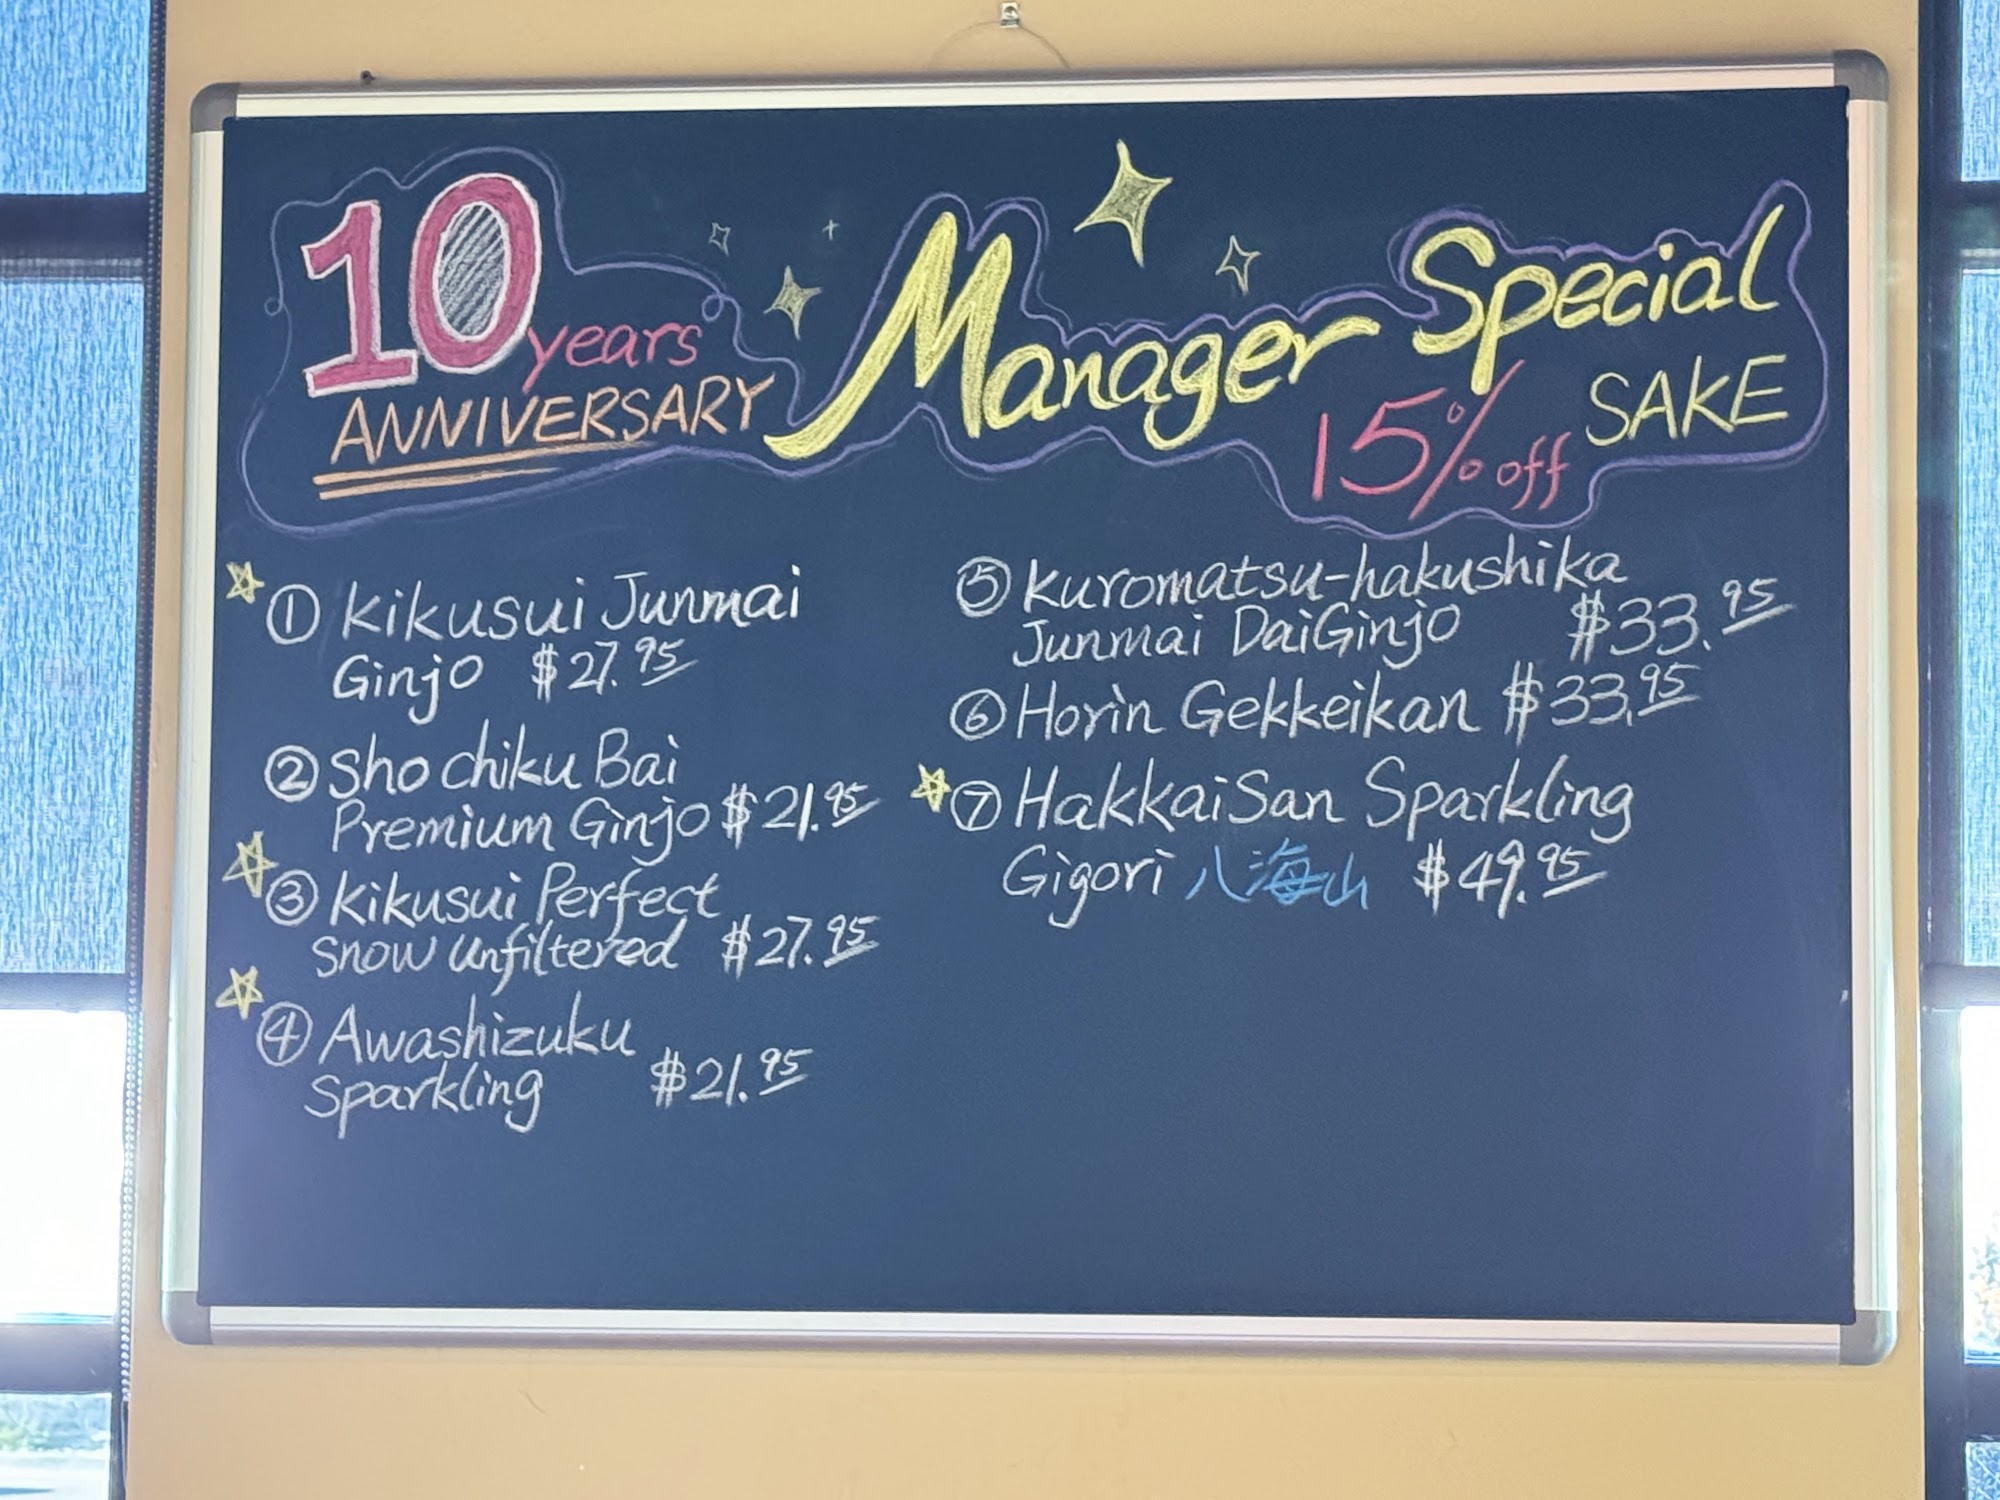 10 years
ANNIVERSARY
Manager Special
15% off SAKE
① Kikusui Junmai
Ginjo $27.95
② Sho chiku Bai
Premium Ginjo $21.95
③ Kikusui Perfect
Snow Unfiltered $27.95
④ Awashizuku
Sparkling $21.95
⑤ Kuromatsu-hakushika
Junmai DaiGinjo $33.95
⑥ Horin Gekkeikan $33.95
⑦ HakkaiSan Sparkling
Gigori 八海山 $49.95